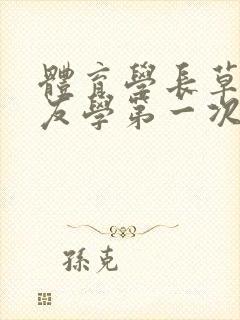 體育學長草
友學第一次
孫克